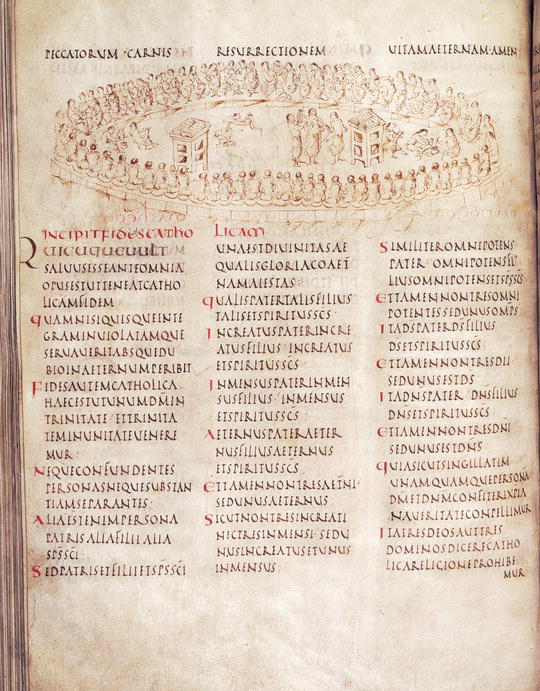 PECCATORUM · CARNIS RESURRECTIONEM UITAMAETERNAM·AMEN
INCIPITFIDESCATHOLICAM
QUICUQUEUULT
SALUUSESSEANTEOMNIA
OPUSESTUTTENEATCATHO
LICAMFIDEM
QUAMNISIQUISQUEINTE
GRAMINUIOLATAMQUE
SERUAUERITABSQUEDU
BIOINAETERNUMPERIBIT
FIDESAUTEMCATHOLICA·
HAECESTUTUNUMDMIN
TRINITATE·ETTRINITA
TEMINUNITATEUENERE
MUR·
NEQUECONFUNDENTES
PERSONASNEQUESUBSTAN
TIAMSEPARANTES·
ALIAESTENIMPERSONA
PATRISALIAFILIIALIA
SPSSCI·
SEDPATRISETFILIIETSPSSCI
UNAESTDIUINITASAE
QUALISGLORIACOAET
NAMAIESTAS·
QUALISPATERTALISFILIUS
TALISETSPIRITUSSCS·
INCREATUSPATERINCRE
ATUSFILIUS·INCREATUS
ETSPIRITUSSCS·
INMENSUSPATERINMEN
SUSFILIUS·INMENSUS
ETSPIRITUSSCS·
AETERNUSPATERAETER
NUSFILIUSAETERNUS
ETSPIRITUSSCS·
ETTAMENNONTRESAETNI·
SEDUNUSAETERNUS·
SICUTNONTRESINCREATI
NECTRESINMENSI·SEDU
NUSINCREATUSETUNUS
INMENSUS·
SIMILITEROMNIPOTENS·
PATER·OMNIPOTENSFI
LIUSOMNIPOTENSETSPSSCS
ETTAMENNONTRESOMNI
POTENTESSEDUNUSOMPS
ITADSPATERDSFILIUS
DSETSPIRITUSSCS·
ETTAMENNONTRESDII
SEDUNUSESTDS
ITADNSPATER·DNSFILIUS
DNSETSPIRITUSSCS·
ETTAMENNONTRESDNI
SEDUNUSESTDNS·
QUIASICUTSINGILLATIM
UNAMQUAMQUEPERSONA
DMETDNMCONFITERIXPIA
NAUERITATECONPELLIMUR
ITATRESDEOSAUTTRES
DOMINOSDICERECATHO
LICARELIGIONEPROHIBE
MUR